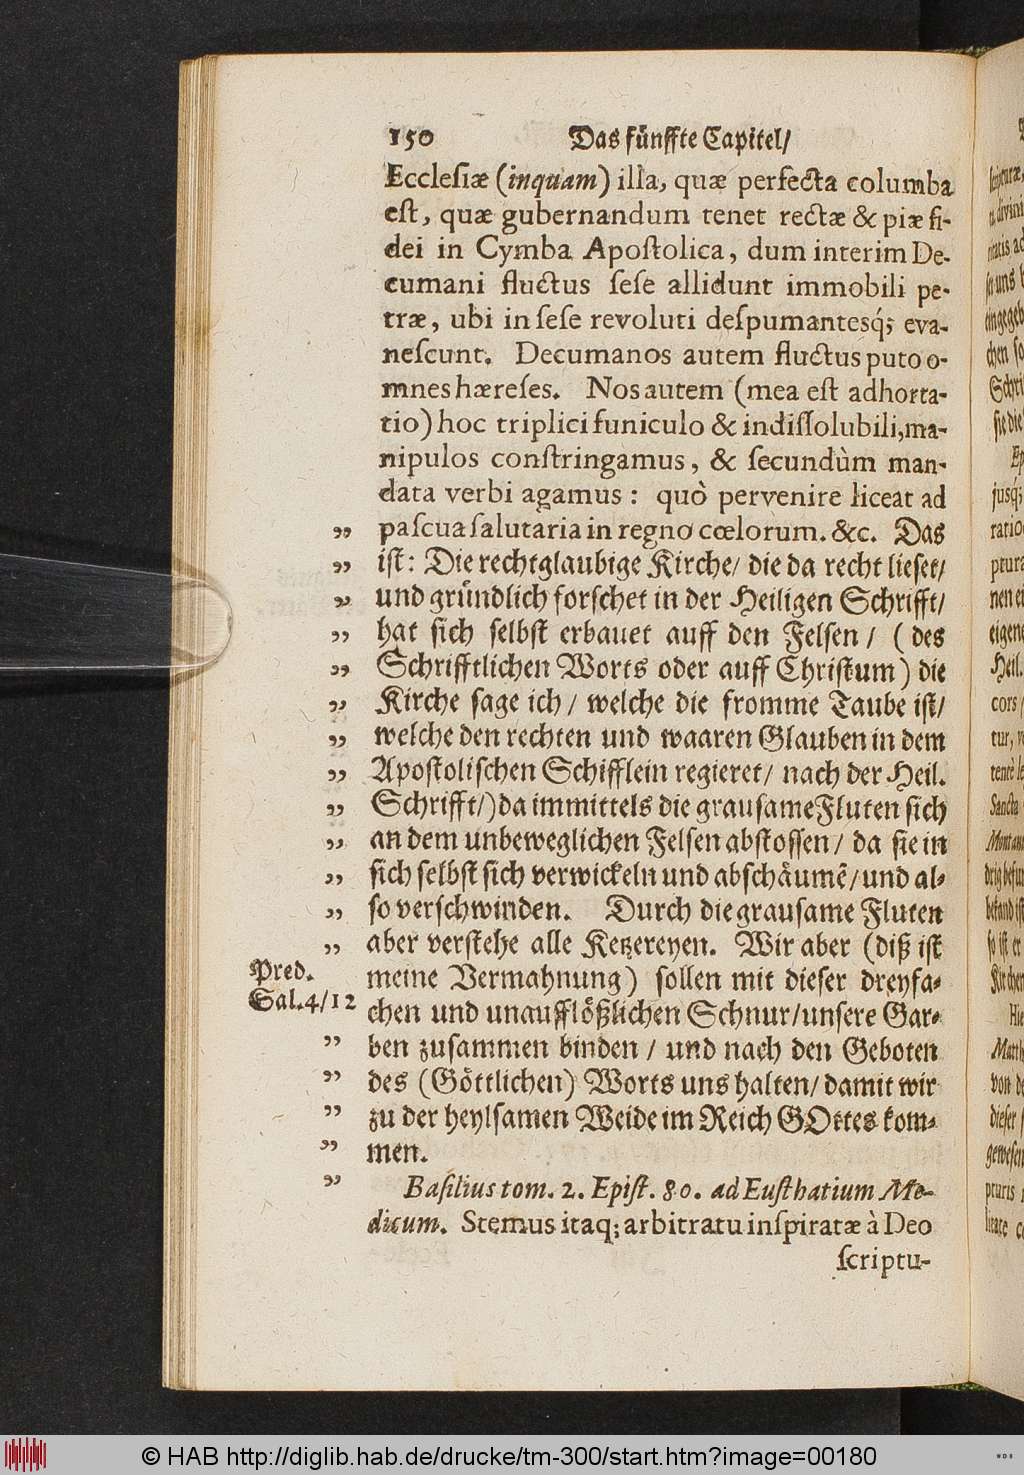 150 Das fünffte Capitel/
Ecclesiæ (inquam) illa, quæ perfecta columba
est, quæ gubernandum tenet rectæ & piæ fi-
dei in Cymba Apostolica, dum interim De-
cumani fluctus sese allidunt immobili pe-
træ, ubi in sese revoluti despumantesq́; eva-
nescunt. Decumanos autem fluctus puto o-
mnes hæreses. Nos autem (mea est adhorta-
tio) hoc triplici funiculo & indissolubili, ma-
nipulos constringamus, & secundùm man-
data verbi agamus: quò pervenire liceat ad
„ pascua salutaria in regno cœlorum. &c. Das
„ ist: Die rechtglaubige Kirche/ die da recht lieset/
„ und gründlich forschet in der Heiligen Schrifft/
„ hat sich selbst erbauet auff den Felsen/ (des
„ Schrifftlichen Worts oder auff Christum) die
„ Kirche sage ich/ welche die fromme Taube ist/
„ welche den rechten und waaren Glauben in dem
„ Apostolischen Schifflein regieret/ nach der Heil.
„ Schrifft/) da immittels die grausame Fluten sich
„ an dem unbeweglichen Felsen abstossen/ da sie in
„ sich selbst sich verwickeln und abschäumẽ/ und al-
„ so verschwinden. Durch die grausame Fluten
„ aber verstehe alle Ketzereyen. Wir aber (diß ist
Pred. meine Vermahnung) sollen mit dieser dreyfa-
Sal.4/12 chen und unaufflößlichen Schnur/ unsere Gar-
„ ben zusammen binden/ und nach den Geboten
„ des (Göttlichen) Worts uns halten/ damit wir
„ zu der heylsamen Weide im Reich GOttes kom-
„ men.
„ Basilius tom. 2. Epist. 80. ad Eusthatium Me-
dicum. Stemus itaq; arbitratu inspiratæ à Deo
scriptu-
© HAB http://diglib.hab.de/drucke/tm-300/start.htm?image=00180